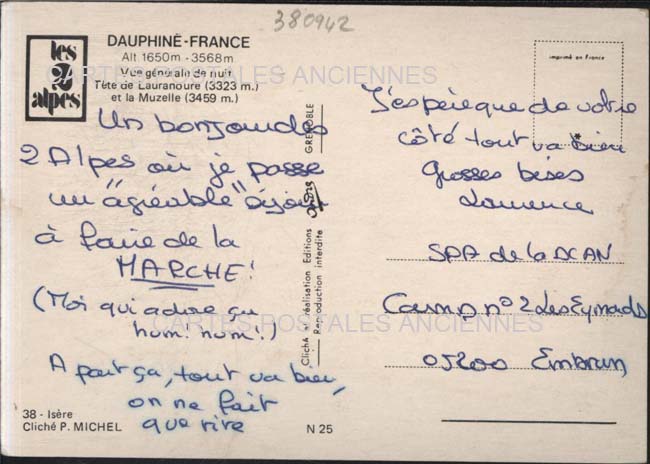 380942
les
2
alpes
DAUPHINÉ-FRANCE
Alt 1650m - 3568m
Vue générale de nuit
Tête de Lauranoure (3323 m.)
et la Muzelle (3459 m.)
CARTES POSTALES ANCIENNES
Un bonjour des
2 Alpes où je passe
un "agréable" séjour
à faire de la
MARCHE!
(Moi qui adore ça
hum! hum!)
CARTES POSTALES ANCIENNES
A part ça, tout va bien,
on ne fait
que rire
38 - Isère
Cliché P. MICHEL
N 25
Cliché et réalisation Editions André GRENOBLE
Reproduction interdite
imprimé en France
J'espère que de votre
côté tout va bien
Grosses bises
Laurence
SPA de la DCAN
Camp n°2 Les Eymards
05200 Embrun